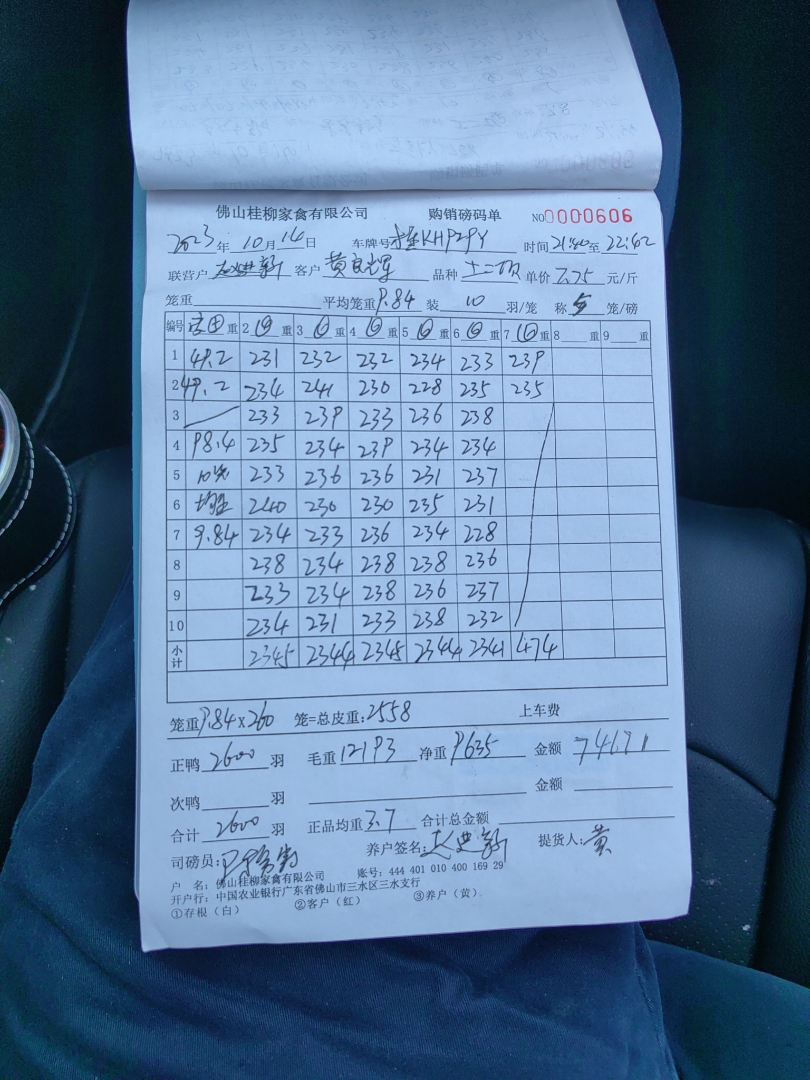 佛山桂柳家禽有限公司 购销磅码单 NO0000606
2023年 10月 14日 车牌号 KHP29Y 时间 21:40至 22:42
联营户 客户 黄良辉 品种 单价 7.75 元/斤
笼重 平均笼重 9.84 装 10 羽/笼 称 5 笼/磅
编号 重 2 ⑩ 重 3 ⑩ 重 4 ⑩ 重 5 ⑩ 重 6 ⑩ 重 7 ⑩ 重 8 重 9 重
1 49.2 231 232 232 234 233 239
2 49.2 234 241 230 228 235 235
3 233 239 233 236 238
4 98.4 235 234 239 234 234
5 10笼 233 236 236 231 237
6 均重 240 230 230 235 231
7 9.84 234 233 236 234 228
8 238 234 238 238 236
9 233 234 238 236 237
10 234 231 233 238 232
小计 2345 2344 2345 2344 2341 474
笼重 9.84×260 笼=总皮重:2558 上车费
正鸭 2600 羽 毛重 12193 净重 9635 金额 74671
次鸭 羽 金额
合计 2600 羽 正品均重 3.7 合计总金额
司磅员: 养户签名: 提货人: 黄
户 名: 佛山桂柳家禽有限公司 账号: 444 401 010 400 169 29
开户行: 中国农业银行广东省佛山市三水区三水支行
①存根（白） ②客户（红） ③养户（黄）